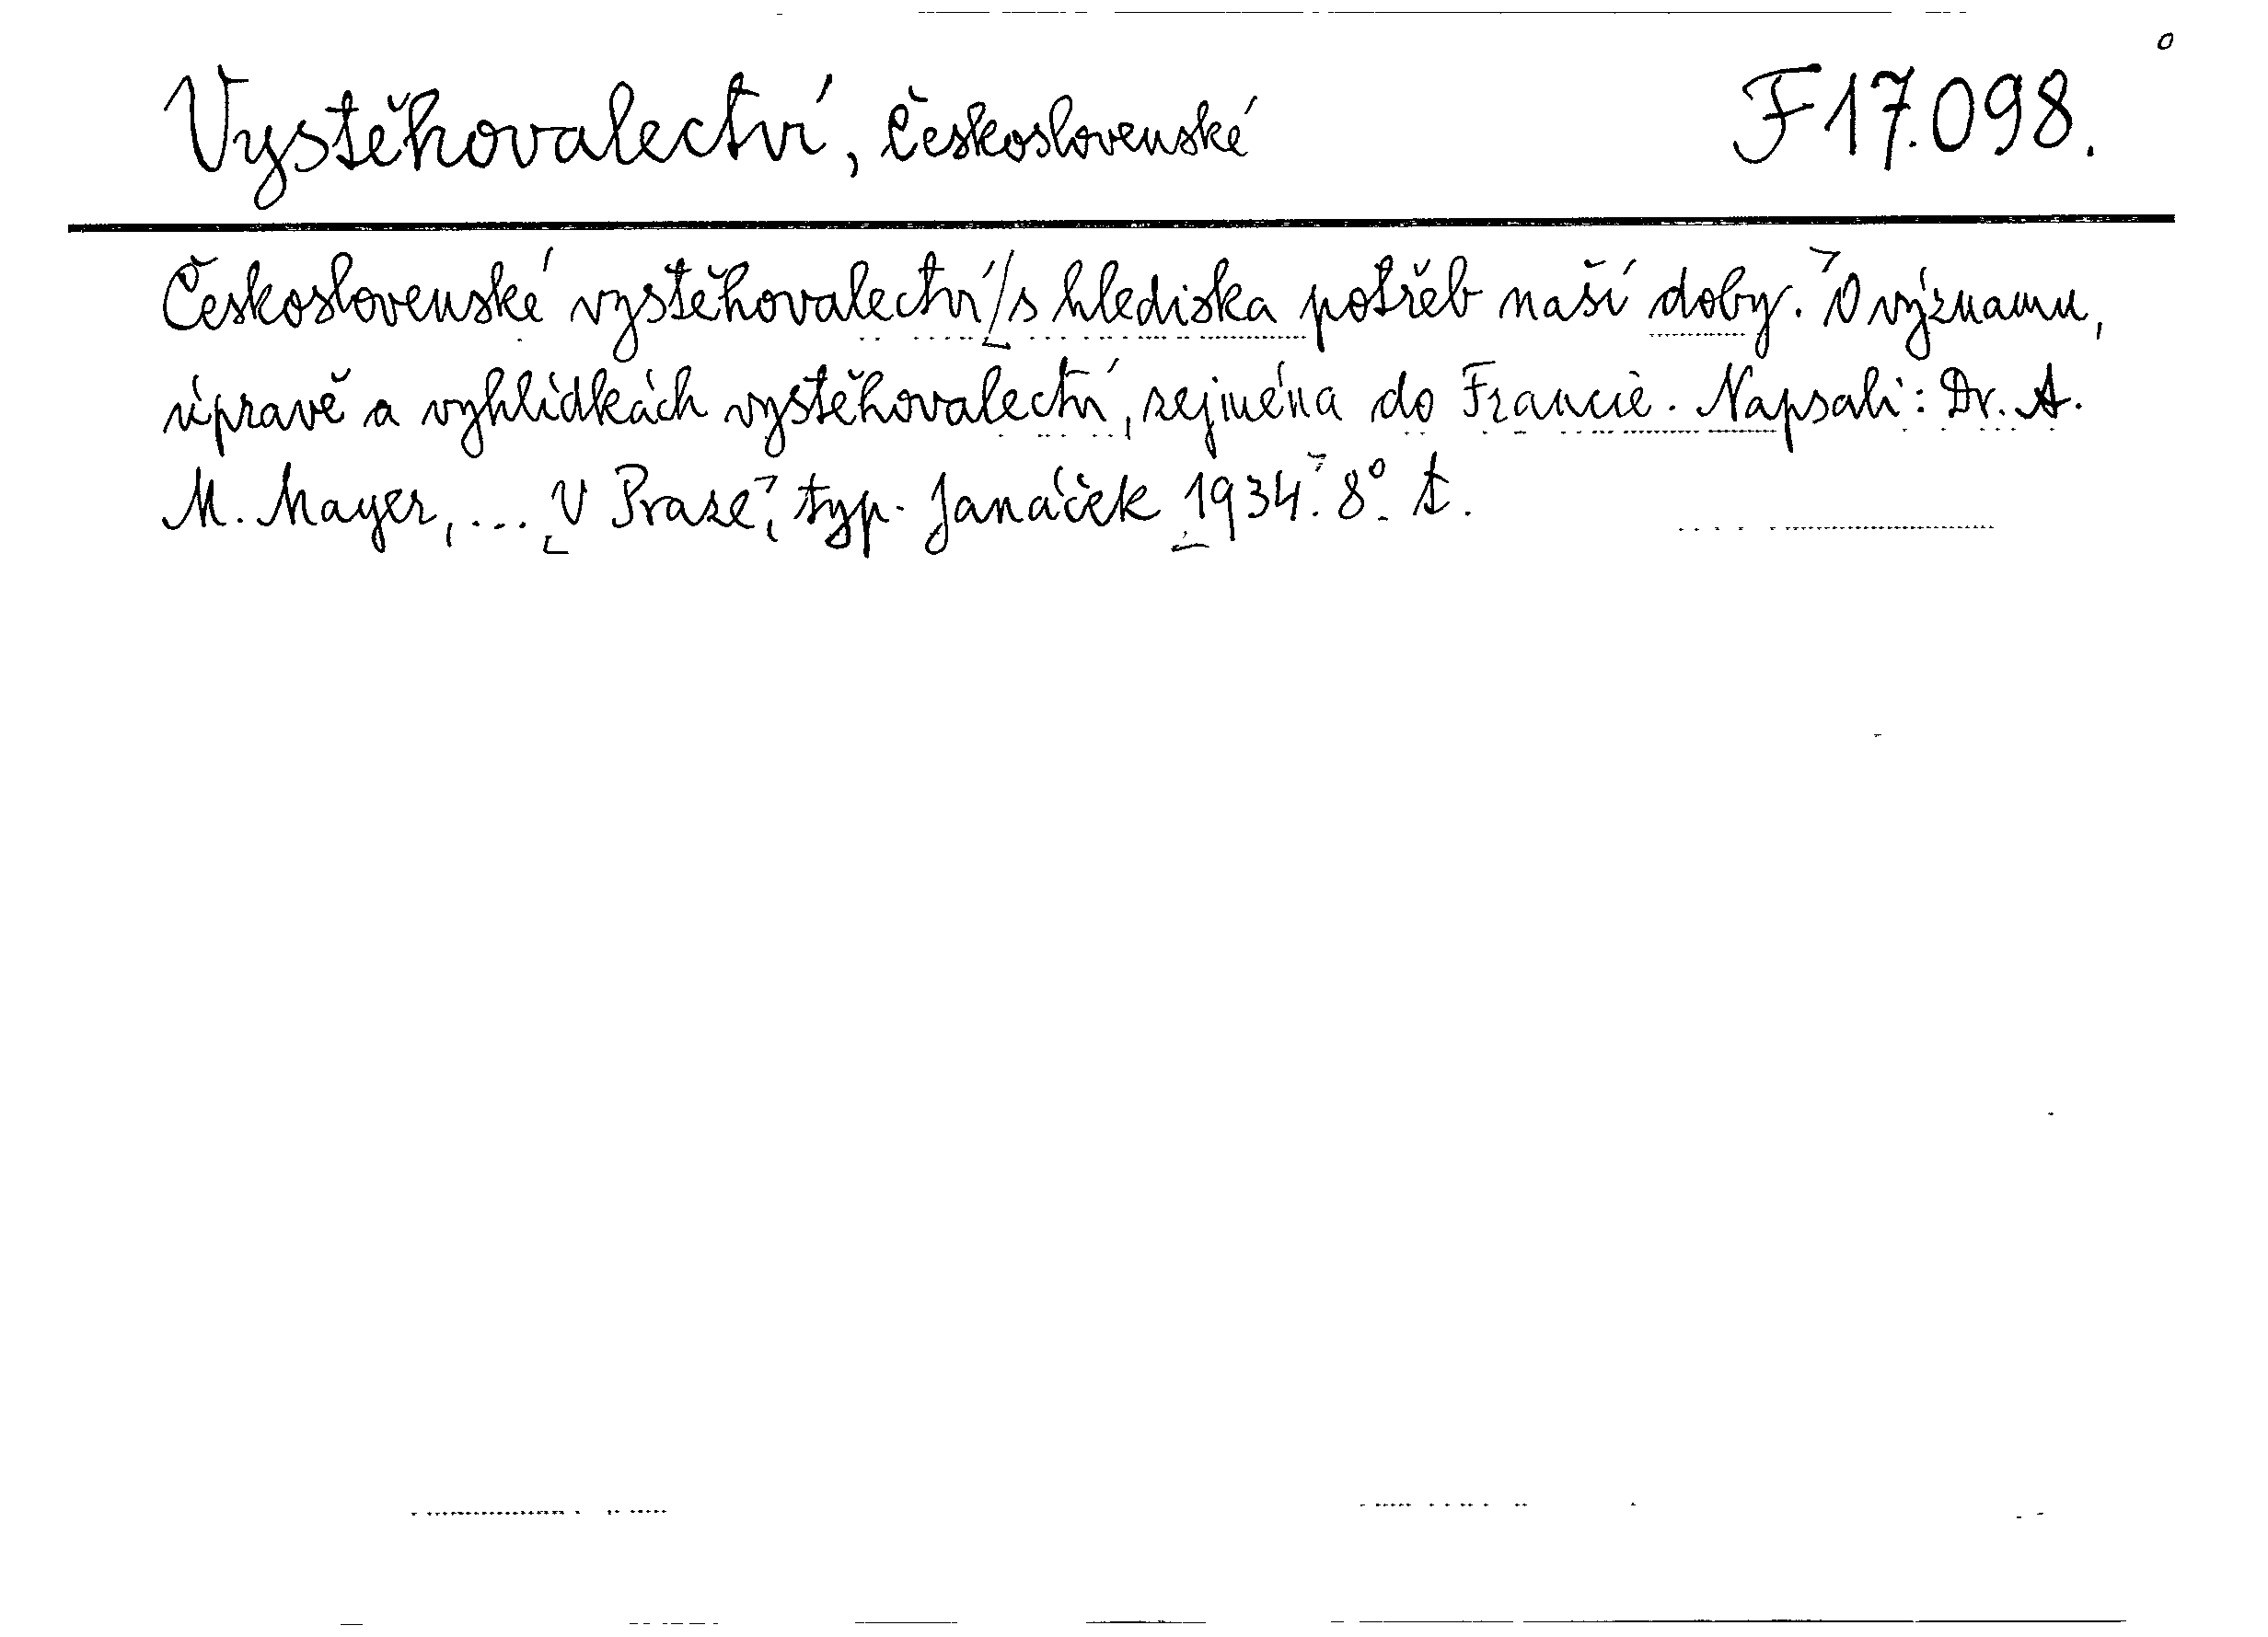 Vystěhovalectví, Československé F 17.098.
Československé vystěhovalectví s hlediska potřeb naší doby. O významu,
úpravě a vyhlídkách vystěhovalectví, zejména do Francie. Napsali: Dr. A.
M. Mayer, ... V Praze, typ. Janáček 1934. 8° t.